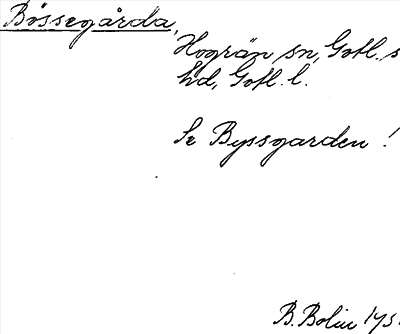 Bössegårda,
Hogrän sn, Gotl. s
hd, Gotl. l.
Se Byssgarden !
B. Bolin 195